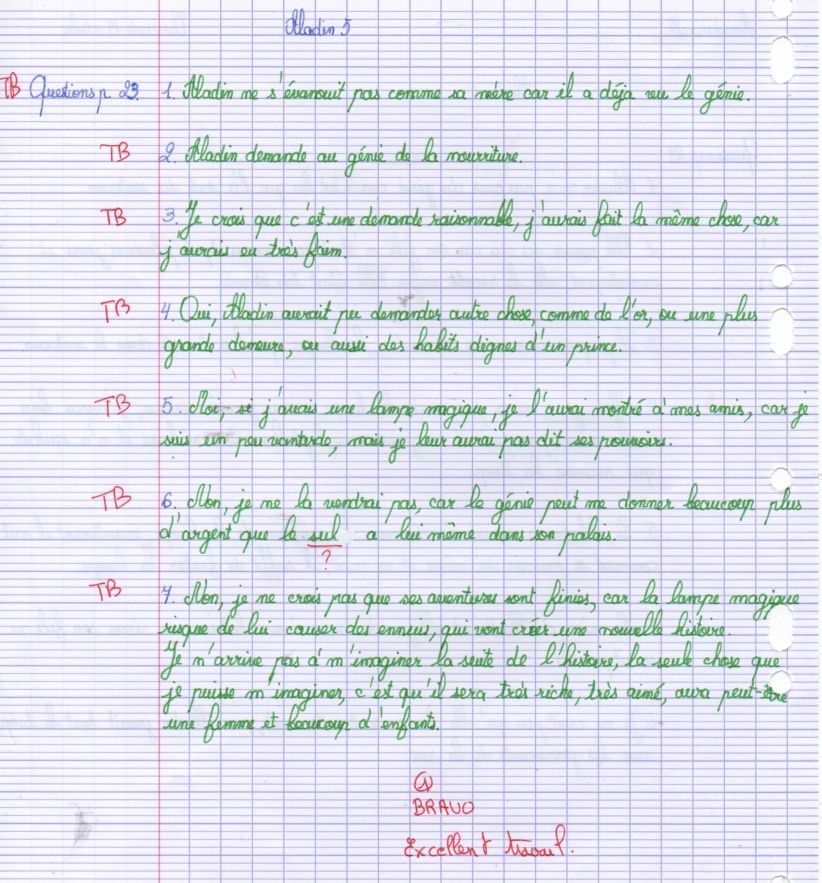 Aladin 5
TB Questions p. 23. 1. Aladin ne s'évanouit pas comme sa mère car il a déja vu le génie.
TB 2. Aladin demande au génie de la nourriture.
TB 3. Je crois que c'est une demande raisonnable, j'aurais fait la même chose, car
j'aurais eu très faim.
TB 4. Oui, Aladin aurait pu demander autre chose, comme de l'or, ou une plus
grande demeure, ou aussi des habits dignes d'un prince.
TB 5. Moi, si j'avais une lampe magique, je l'aurai montré à mes amis, car je
suis un peu vantarde, mais je leur aurai pas dit ses pouvoirs.
TB 6. Non, je ne la vendrai pas, car le génie peut me donner beaucoup plus
d'argent que le sul a lui même dans son palais.
?
TB 7. Non, je ne crois pas que ses aventures sont finies, car la lampe magique
risque de lui causer des ennuis, qui vont créer une nouvelle histoire.
Je n'arrive pas à m'imaginer la suite de l'histoire, la seule chose que
je puisse m'imaginer, c'est qu'il sera très riche, très aimé, aura peut-être
une femme et beaucoup d'enfants.
A
BRAVO
Excellent travail.